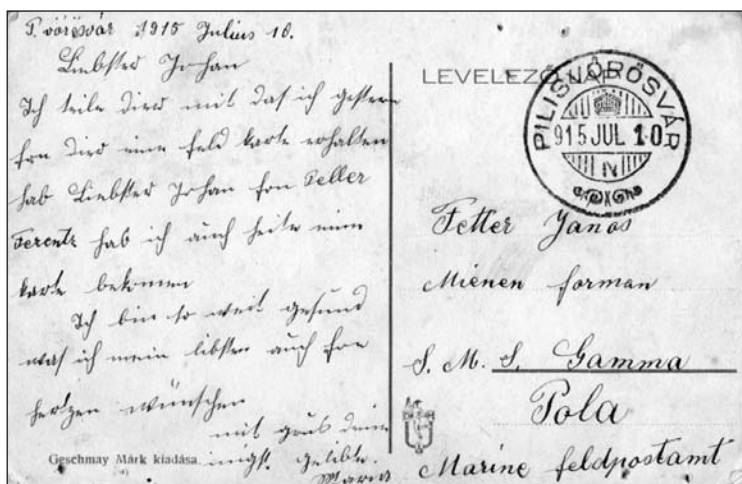 P. vörösvár 1915 Julius 10.
Liebster Johan
Ich teile dier mit das ich gestern
fon dier eine feld karte erhalten
hab Liebster Johan fon Feller
Ferentz hab ich auch heite eine
karte bekomen
Ich bin so weit gesund
was ich mein libsten auch fon
hertzen wünschen
mit grus deine
inigst gelibte
Maria
Geschmay Márk kiadása.
LEVELEZŐ-LAP
PILISVÖRÖSVÁR
915 JUL 10
Fetter János
Mienen forman
S. M. S. Gamma
Pola
Marine feldpostamt